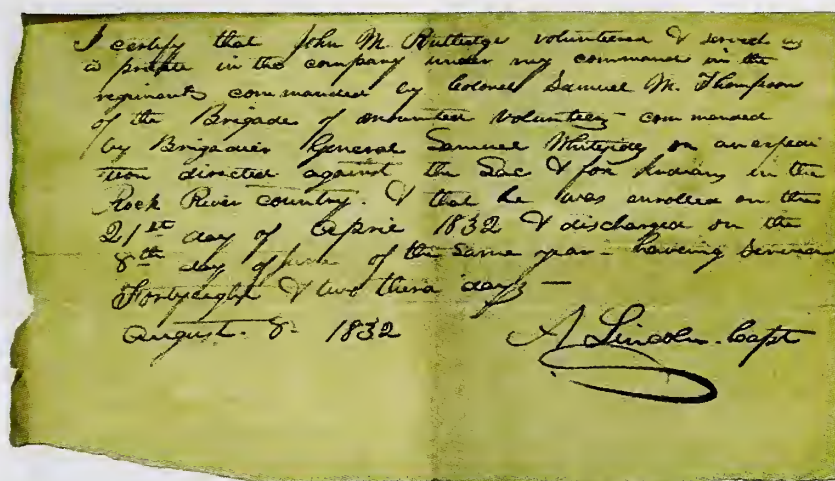 I certify that John M. Rutledge volunteered & served as
a private in the company under my command in the
regiment commanded by Colonel Samuel M. Thompson
of the Brigade of mounted volunteers commanded
by Brigadier General Samuel Whiteside on an expedi
tion directed against the Sac & fox Indians in the
Rock River country. & that he was enrolled on the
21st day of April 1832 & discharged on the
8th day of June of the same year - having served
Forty eight & two third days —
August. 8- 1832
A Lincoln. Capt